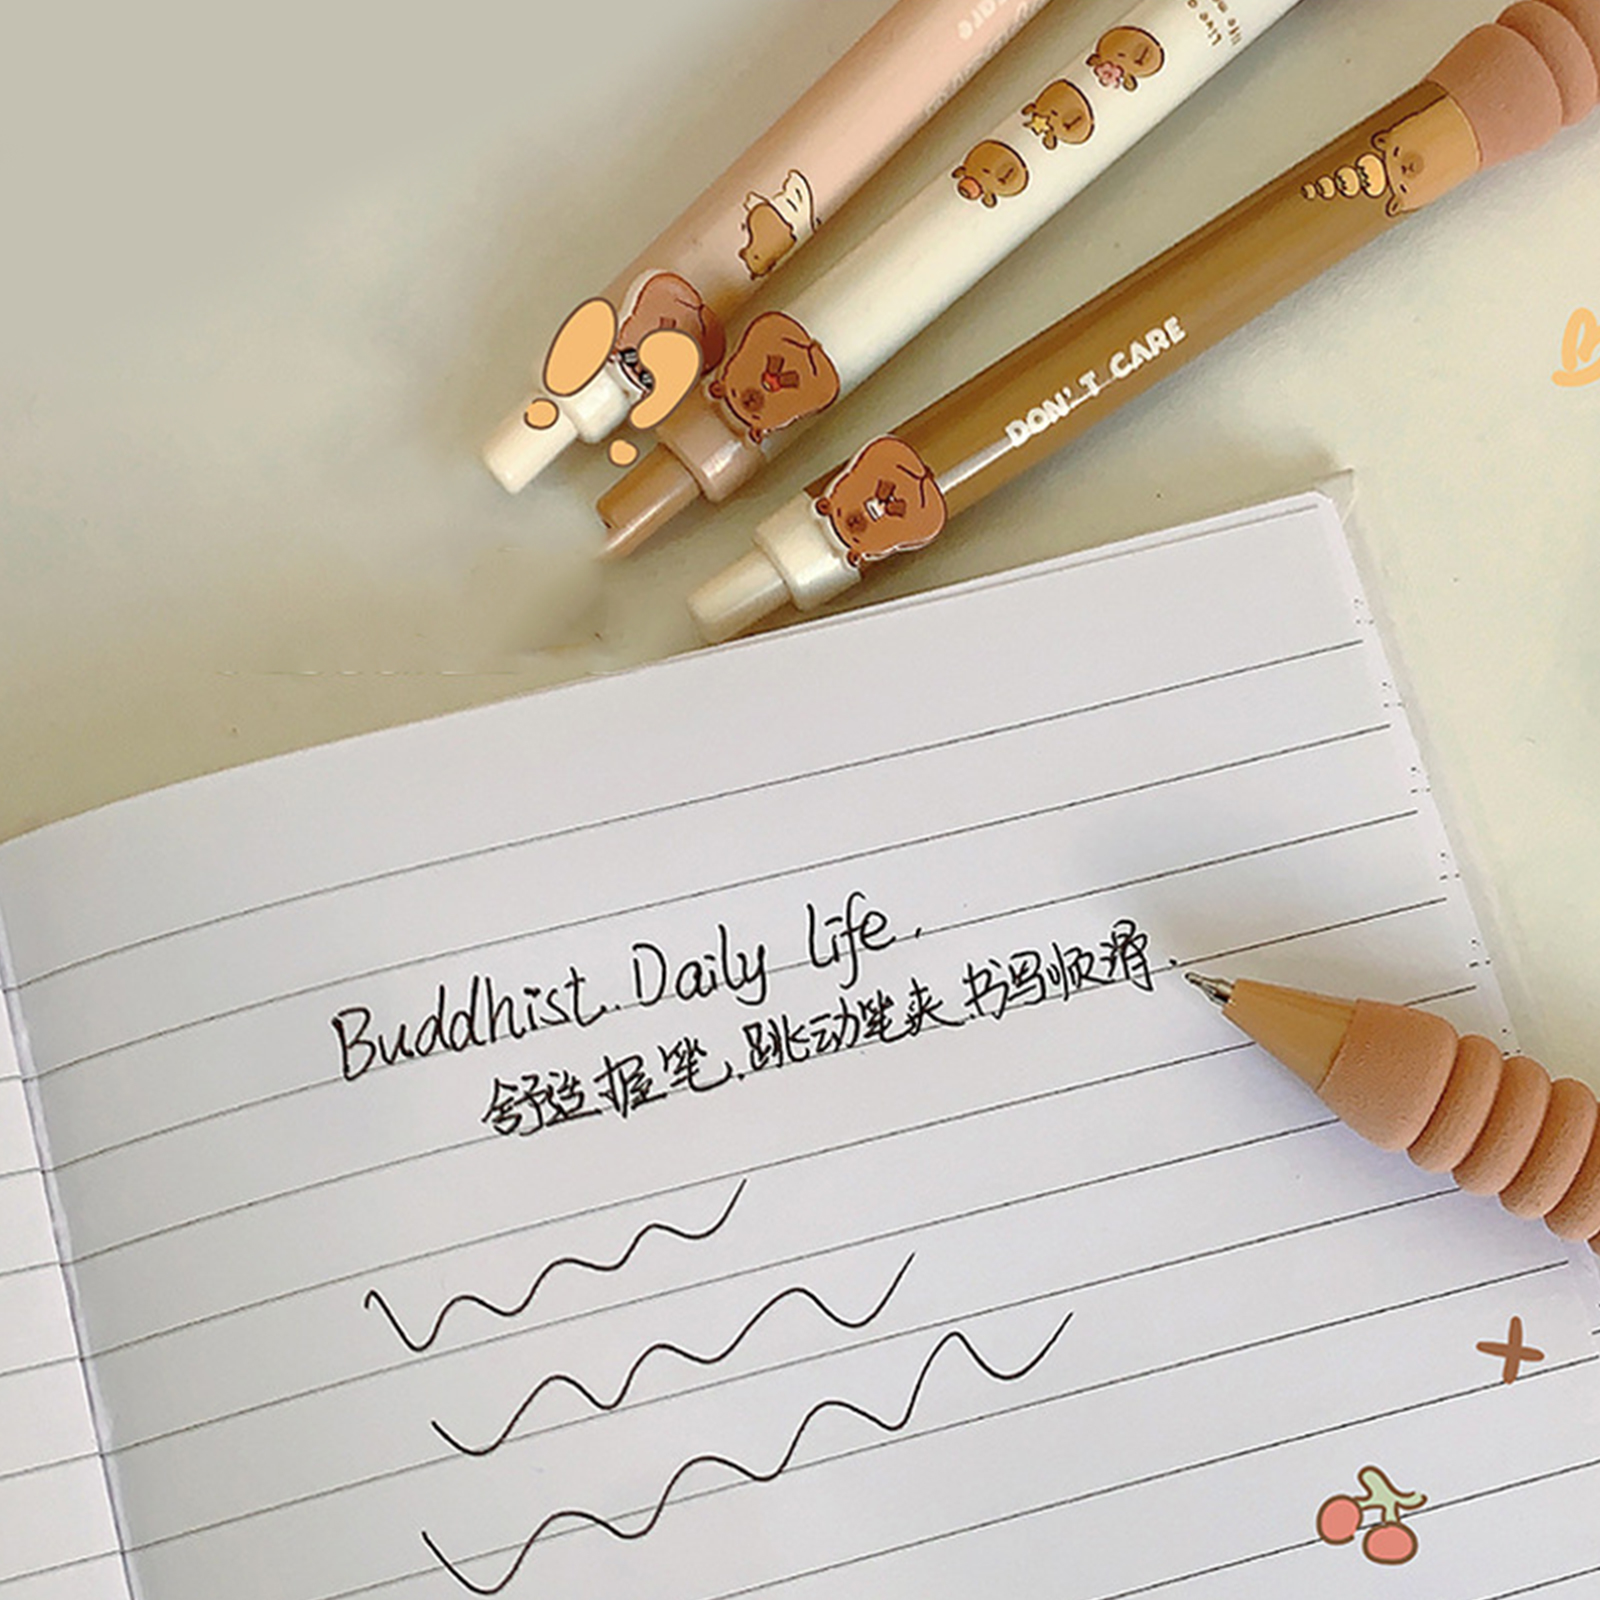 care
DON'T CARE
Buddhist Daily life.
舒适握笔.跳动笔夹.书写顺滑.